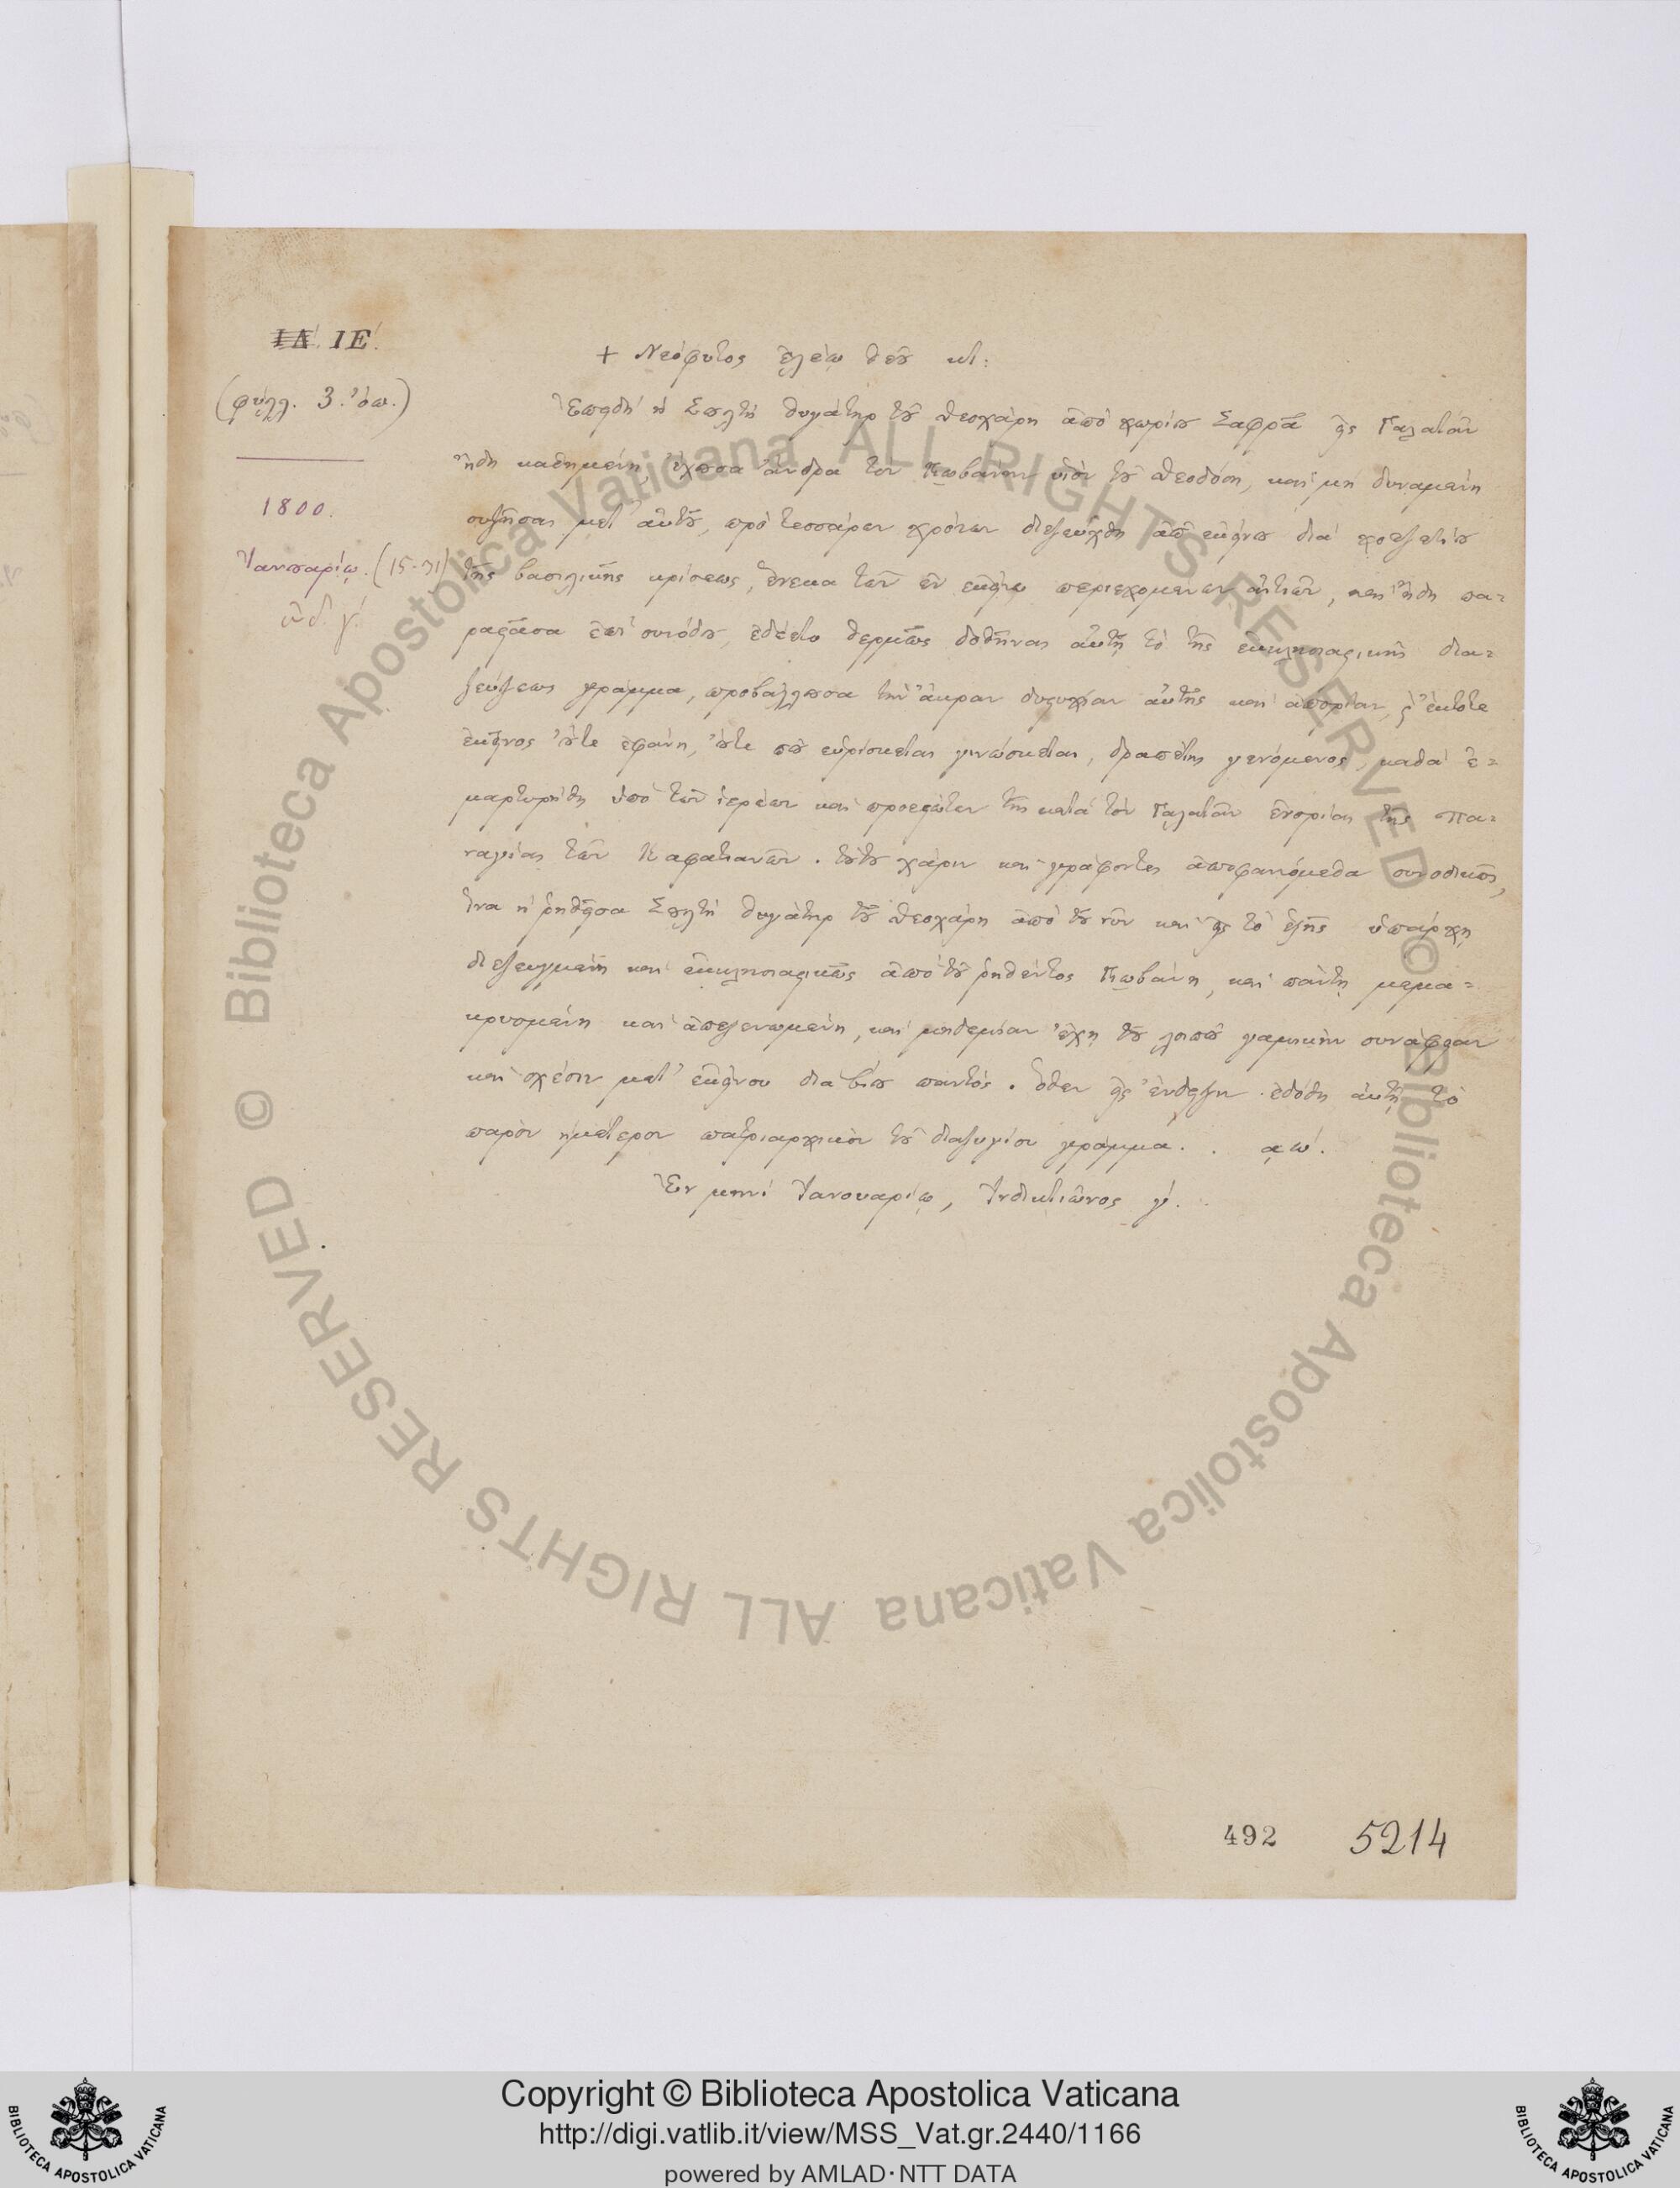 ΙΔ΄. ΙΕ΄.
(φύλλ. 3. ὄπ.)
1800.
Ἰανουαρίῳ. (15-31)
ἰνδ. γ΄.
+ Νεόφυτος ἐλέῳ Θεοῦ κτ:
Ἐπειδὴ ἡ Σουλτὴ θυγάτηρ τοῦ Θεοχάρη ἀπὸ χωρίου Σαφρᾶ εἰς Γαλατᾶν
ἤδη καθημένη, ἔχουσα ἄνδρα τὸν υἱὸν τοῦ Θεοδόση, καὶ μὴ δυναμένη
συζῆσαι μετ' αὐτοῦ, πρὸ τεσσάρων χρόνων διεζεύχθη ἀπ' ἐκείνου διὰ χοτζετίου
τῆς βασιλικῆς κρίσεως, ἕνεκα τῶν ἐν ἐκείνῳ περιεχομένων αἰτιῶν, καὶ ἤδη πα=
ραστᾶσα ἐπὶ συνόδου, ἐδέετο θερμῶς δοθῆναι αὐτῇ τὸ τῆς ἐκκλησιαστικῆς δια=
ζεύξεως γράμμα, προβάλλουσα τὴν ἄκραν δυστυχίαν αὐτῆς καὶ ἀπορίαν, ὅτι ἔκτοτε
ἐκεῖνος οὔτε ἐφάνη, οὔτε ποῦ εὑρίσκεται γινώσκεται, δραπέτης γενόμενος, καθὰ ἐ=
μαρτυρήθη ὑπὸ τῶν ἱερέων καὶ προεστώτων τῆς κατὰ τὸν Γαλατᾶν ἐνορίας τῆς Πα=
ναγίας τῶν Καφατιανῶν. τούτου χάριν καὶ γράφοντες ἀποφαινόμεθα συνοδικῶς,
ἵνα ἡ ῥηθεῖσα Σουλτὴ θυγάτηρ τοῦ Θεοχάρη ἀπὸ τοῦ νῦν καὶ εἰς τὸ ἑξῆς ὑπάρχῃ
διεζευγμένη καὶ ἐκκλησιαστικῶς ἀπὸ τοῦ ῥηθέντος καὶ πάντῃ μεμα=
κρυσμένη καὶ ἀπεξενωμένη, καὶ μηδεμίαν ἔχῃ τοῦ λοιποῦ γαμικὴν συνάφειαν
καὶ σχέσιν μετ' ἐκείνου διὰ βίου παντός. ὅθεν εἰς ἔνδειξιν ἐδόθη αὐτῇ τὸ
παρὸν ἡμέτερον πατριαρχικὸν τοῦ διαζυγίου γράμμα. . ͵αω΄.
Ἐν μηνὶ Ἰανουαρίῳ, Ἰνδικτιῶνος γ΄.
492 5214
© Biblioteca Apostolica Vaticana ALL RIGHTS RESERVED © Biblioteca Apostolica Vaticana ALL RIGHTS RESERVED
Copyright © Biblioteca Apostolica Vaticana
http://digi.vatlib.it/view/MSS_Vat.gr.2440/1166
powered by AMLAD·NTT DATA
BIBLIOTECA APOSTOLICA VATICANA
BIBLIOTECA APOSTOLICA VATICANA